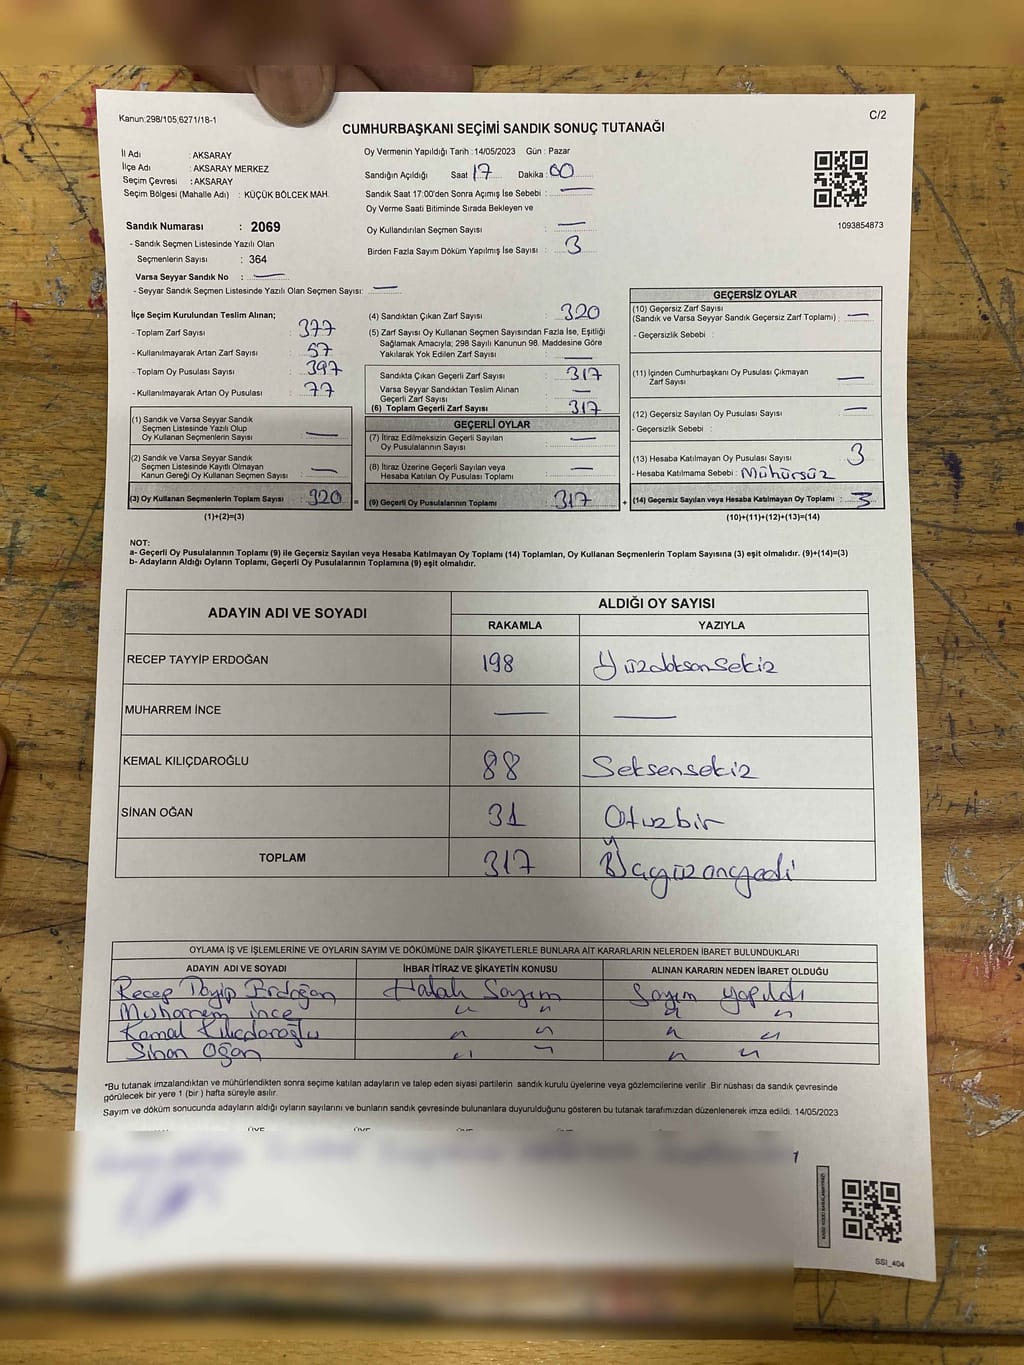 Kanun:298/105,6271/18-1
C/2
CUMHURBAŞKANI SEÇİMİ SANDIK SONUÇ TUTANAĞI
İl Adı : AKSARAY
İlçe Adı : AKSARAY MERKEZ
Seçim Çevresi : AKSARAY
Seçim Bölgesi (Mahalle Adı) : KÜÇÜK BÖLCEK MAH.
Sandık Numarası : 2069
- Sandık Seçmen Listesinde Yazılı Olan
Seçmenlerin Sayısı : 364
Varsa Seyyar Sandık No : —
- Seyyar Sandık Seçmen Listesinde Yazılı Olan Seçmen Sayısı: —
Oy Vermenin Yapıldığı Tarih :14/05/2023 Gün : Pazar
Sandığın Açıldığı Saat 17 Dakika : 00
Sandık Saat 17:00'den Sonra Açımış İse Sebebi : —
Oy Verme Saati Bitiminde Sırada Bekleyen ve
Oy Kullandırılan Seçmen Sayısı : —
Birden Fazla Sayım Döküm Yapılmış İse Sayısı : 3
1093854873
İlçe Seçim Kurulundan Teslim Alınan;
- Toplam Zarf Sayısı : 377
- Kullanılmayarak Artan Zarf Sayısı : 57
- Toplam Oy Pusulası Sayısı : 397
- Kullanılmayarak Artan Oy Pusulası : 77
(1) Sandık ve Varsa Seyyar Sandık
Seçmen Listesinde Yazılı Olup
Oy Kullanan Seçmenlerin Sayısı : —
(2) Sandık ve Varsa Seyyar Sandık
Seçmen Listesinde Kayıtlı Olmayan
Kanun Gereği Oy Kullanan Seçmen Sayısı : —
(3) Oy Kullanan Seçmenlerin Toplam Sayısı : 320 =
(1)+(2)=(3)
(4) Sandıktan Çıkan Zarf Sayısı : 320
(5) Zarf Sayısı Oy Kullanan Seçmen Sayısından Fazla İse, Eşitliği
Sağlamak Amacıyla; 298 Sayılı Kanunun 98. Maddesine Göre
Yakılarak Yok Edilen Zarf Sayısı : —
Sandıkta Çıkan Geçerli Zarf Sayısı : 317
Varsa Seyyar Sandıktan Teslim Alınan
Geçerli Zarf Sayısı : —
(6) Toplam Geçerli Zarf Sayısı : 317
GEÇERLİ OYLAR
(7) İtiraz Edilmeksizin Geçerli Sayılan
Oy Pusulalarının Sayısı : —
(8) İtiraz Üzerine Geçerli Sayılan veya
Hesaba Katılan Oy Pusulası Toplamı : —
(9) Geçerli Oy Pusulalarının Toplamı : 317 +
GEÇERSİZ OYLAR
(10) Geçersiz Zarf Sayısı
(Sandık ve Varsa Seyyar Sandık Geçersiz Zarf Toplamı) : —
- Geçersizlik Sebebi :
(11) İçinden Cumhurbaşkanı Oy Pusulası Çıkmayan
Zarf Sayısı : —
(12) Geçersiz Sayılan Oy Pusulası Sayısı : —
- Geçersizlik Sebebi :
(13) Hesaba Katılmayan Oy Pusulası Sayısı : 3
- Hesaba Katılmama Sebebi : Mühürsüz
(14) Geçersiz Sayılan veya Hesaba Katılmayan Oy Toplamı : 3
(10)+(11)+(12)+(13)=(14)
NOT:
a- Geçerli Oy Pusulalarının Toplamı (9) ile Geçersiz Sayılan veya Hesaba Katılmayan Oy Toplamı (14) Toplamları, Oy Kullanan Seçmenlerin Toplam Sayısına (3) eşit olmalıdır. (9)+(14)=(3)
b- Adayların Aldığı Oyların Toplamı, Geçerli Oy Pusulalarının Toplamına (9) eşit olmalıdır.
ADAYIN ADI VE SOYADI
ALDIĞI OY SAYISI
RAKAMLA YAZIYLA
RECEP TAYYİP ERDOĞAN 198 Yüzdoksansekiz
MUHARREM İNCE — —
KEMAL KILIÇDAROĞLU 88 Seksensekiz
SİNAN OĞAN 31 Otuzbir
TOPLAM 317 Üçyüzonyedi
OYLAMA İŞ VE İŞLEMLERİNE VE OYLARIN SAYIM VE DÖKÜMÜNE DAİR ŞİKAYETLERLE BUNLARA AİT KARARLARIN NELERDEN İBARET BULUNDUKLARI
ADAYIN ADI VE SOYADI İHBAR İTİRAZ VE ŞİKAYETİN KONUSU ALINAN KARARIN NEDEN İBARET OLDUĞU
Recep Tayip Erdoğan Hatalı Sayım Sayım yapıldı
Muharrem ince " " " "
Kemal Kılıçdaroğlu " " " "
Sinan Oğan " " " "
*Bu tutanak imzalandıktan ve mühürlendikten sonra seçime katılan adayların ve talep eden siyasi partilerin sandık kurulu üyelerine veya gözlemcilerine verilir .Bir nüshası da sandık çevresinde
görülecek bir yere 1 (bir ) hafta süreyle asılır.
Sayım ve döküm sonucunda adayların aldığı oyların sayılarını ve bunların sandık çevresinde bulunanlara duyurulduğunu gösteren bu tutanak tarafımızdan düzenlenerek imza edildi. 14/05/2023
SSI_404